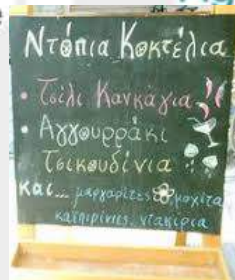 Ντόπια Κοκτέλια
• Τσίλι Κανκάγια
• Αγγουρράκι
Τσικουδίνια
και... μαργαρίτες μοχίτα
καϊπιρίνιες, ντακίρια